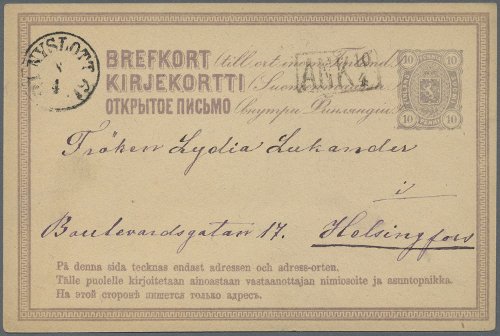 NYSLOTT
BREFKORT till ort inom Finland
KIRJEKORTTI (Suomenmaassa)
ОТКРЫТОЕ ПИСЬМО Внутри Финляндіи
ANK
10 10
10 10
Fröken Lydia Lukander
i
Boulevardsgatan 17. Helsingfors
På denna sida tecknas endast adressen och adress-orten.
Tälle puolelle kirjoitetaan ainoastaan vastaanottajan nimiosoite ja asuntopaikka.
На этой сторонѣ пишется только адресъ.